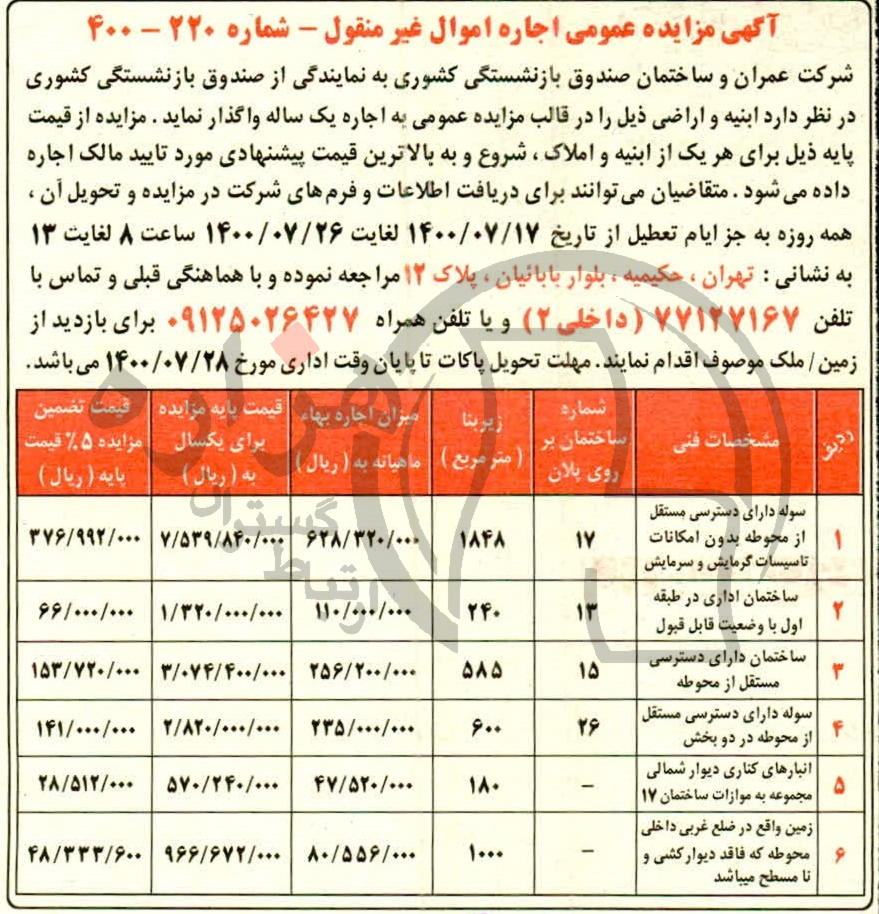 آگهی مزایده عمومی اجاره اموال غیر منقول – شماره ۲۲۰ – ۴۰۰
شرکت عمران و ساختمان صندوق بازنشستگی کشوری به نمایندگی از صندوق بازنشستگی کشوری
در نظر دارد ابنیه و اراضی ذیل را در قالب مزایده عمومی به اجاره یک ساله واگذار نماید . مزایده از قیمت
پایه ذیل برای هر یک از ابنیه و املاک ، شروع و به بالاترین قیمت پیشنهادی مورد تایید مالک اجاره
داده می شود . متقاضیان می توانند برای دریافت اطلاعات و فرم های شرکت در مزایده و تحویل آن ،
همه روزه به جز ایام تعطیل از تاریخ ۱۴۰۰/۰۷/۱۷ لغایت ۱۴۰۰/۰۷/۲۶ ساعت ۸ لغایت ۱۳
به نشانی : تهران ، حکیمیه ، بلوار بابائیان ، پلاک ۱۲ مراجعه نموده و با هماهنگی قبلی و تماس با
تلفن ۷۷۱۲۷۱۶۷ (داخلی ۲) و یا تلفن همراه ۰۹۱۲۵۰۲۶۴۲۷ برای بازدید از
زمین / ملک موصوف اقدام نمایند. مهلت تحویل پاکات تا پایان وقت اداری مورخ ۱۴۰۰/۰۷/۲۸ می باشد.
ردیف مشخصات فنی شماره ساختمان بر روی پلان زیربنا (متر مربع) میزان اجاره بهاء ماهیانه به (ریال) قیمت پایه مزایده برای یکسال به (ریال) قیمت تضمین مزایده ۵٪ قیمت پایه (ریال)
۱ سوله دارای دسترسی مستقل از محوطه بدون امکانات تاسیسات گرمایش و سرمایش ۱۷ ۱۸۴۸ ۶۲۸/۳۲۰/۰۰۰ ۷/۵۳۹/۸۴۰/۰۰۰ ۳۷۶/۹۹۲/۰۰۰
۲ ساختمان اداری در طبقه اول با وضعیت قابل قبول ۱۳ ۲۴۰ ۱۱۰/۰۰۰/۰۰۰ ۱/۳۲۰/۰۰۰/۰۰۰ ۶۶/۰۰۰/۰۰۰
۳ ساختمان دارای دسترسی مستقل از محوطه ۱۵ ۵۸۵ ۲۵۶/۲۰۰/۰۰۰ ۳/۰۷۴/۴۰۰/۰۰۰ ۱۵۳/۷۲۰/۰۰۰
۴ سوله دارای دسترسی مستقل از محوطه در دو بخش ۲۶ ۶۰۰ ۲۳۵/۰۰۰/۰۰۰ ۲/۸۲۰/۰۰۰/۰۰۰ ۱۴۱/۰۰۰/۰۰۰
۵ انبارهای کناری دیوار شمالی مجموعه به موازات ساختمان ۱۷ – ۱۸۰ ۴۷/۵۲۰/۰۰۰ ۵۷۰/۲۴۰/۰۰۰ ۲۸/۵۱۲/۰۰۰
۶ زمین واقع در ضلع غربی داخلی محوطه که فاقد دیوار کشی و نا مسطح میباشد – ۱۰۰۰ ۸۰/۵۵۶/۰۰۰ ۹۶۶/۶۷۲/۰۰۰ ۴۸/۳۳۳/۶۰۰
هزاره
گستران
ارتباط